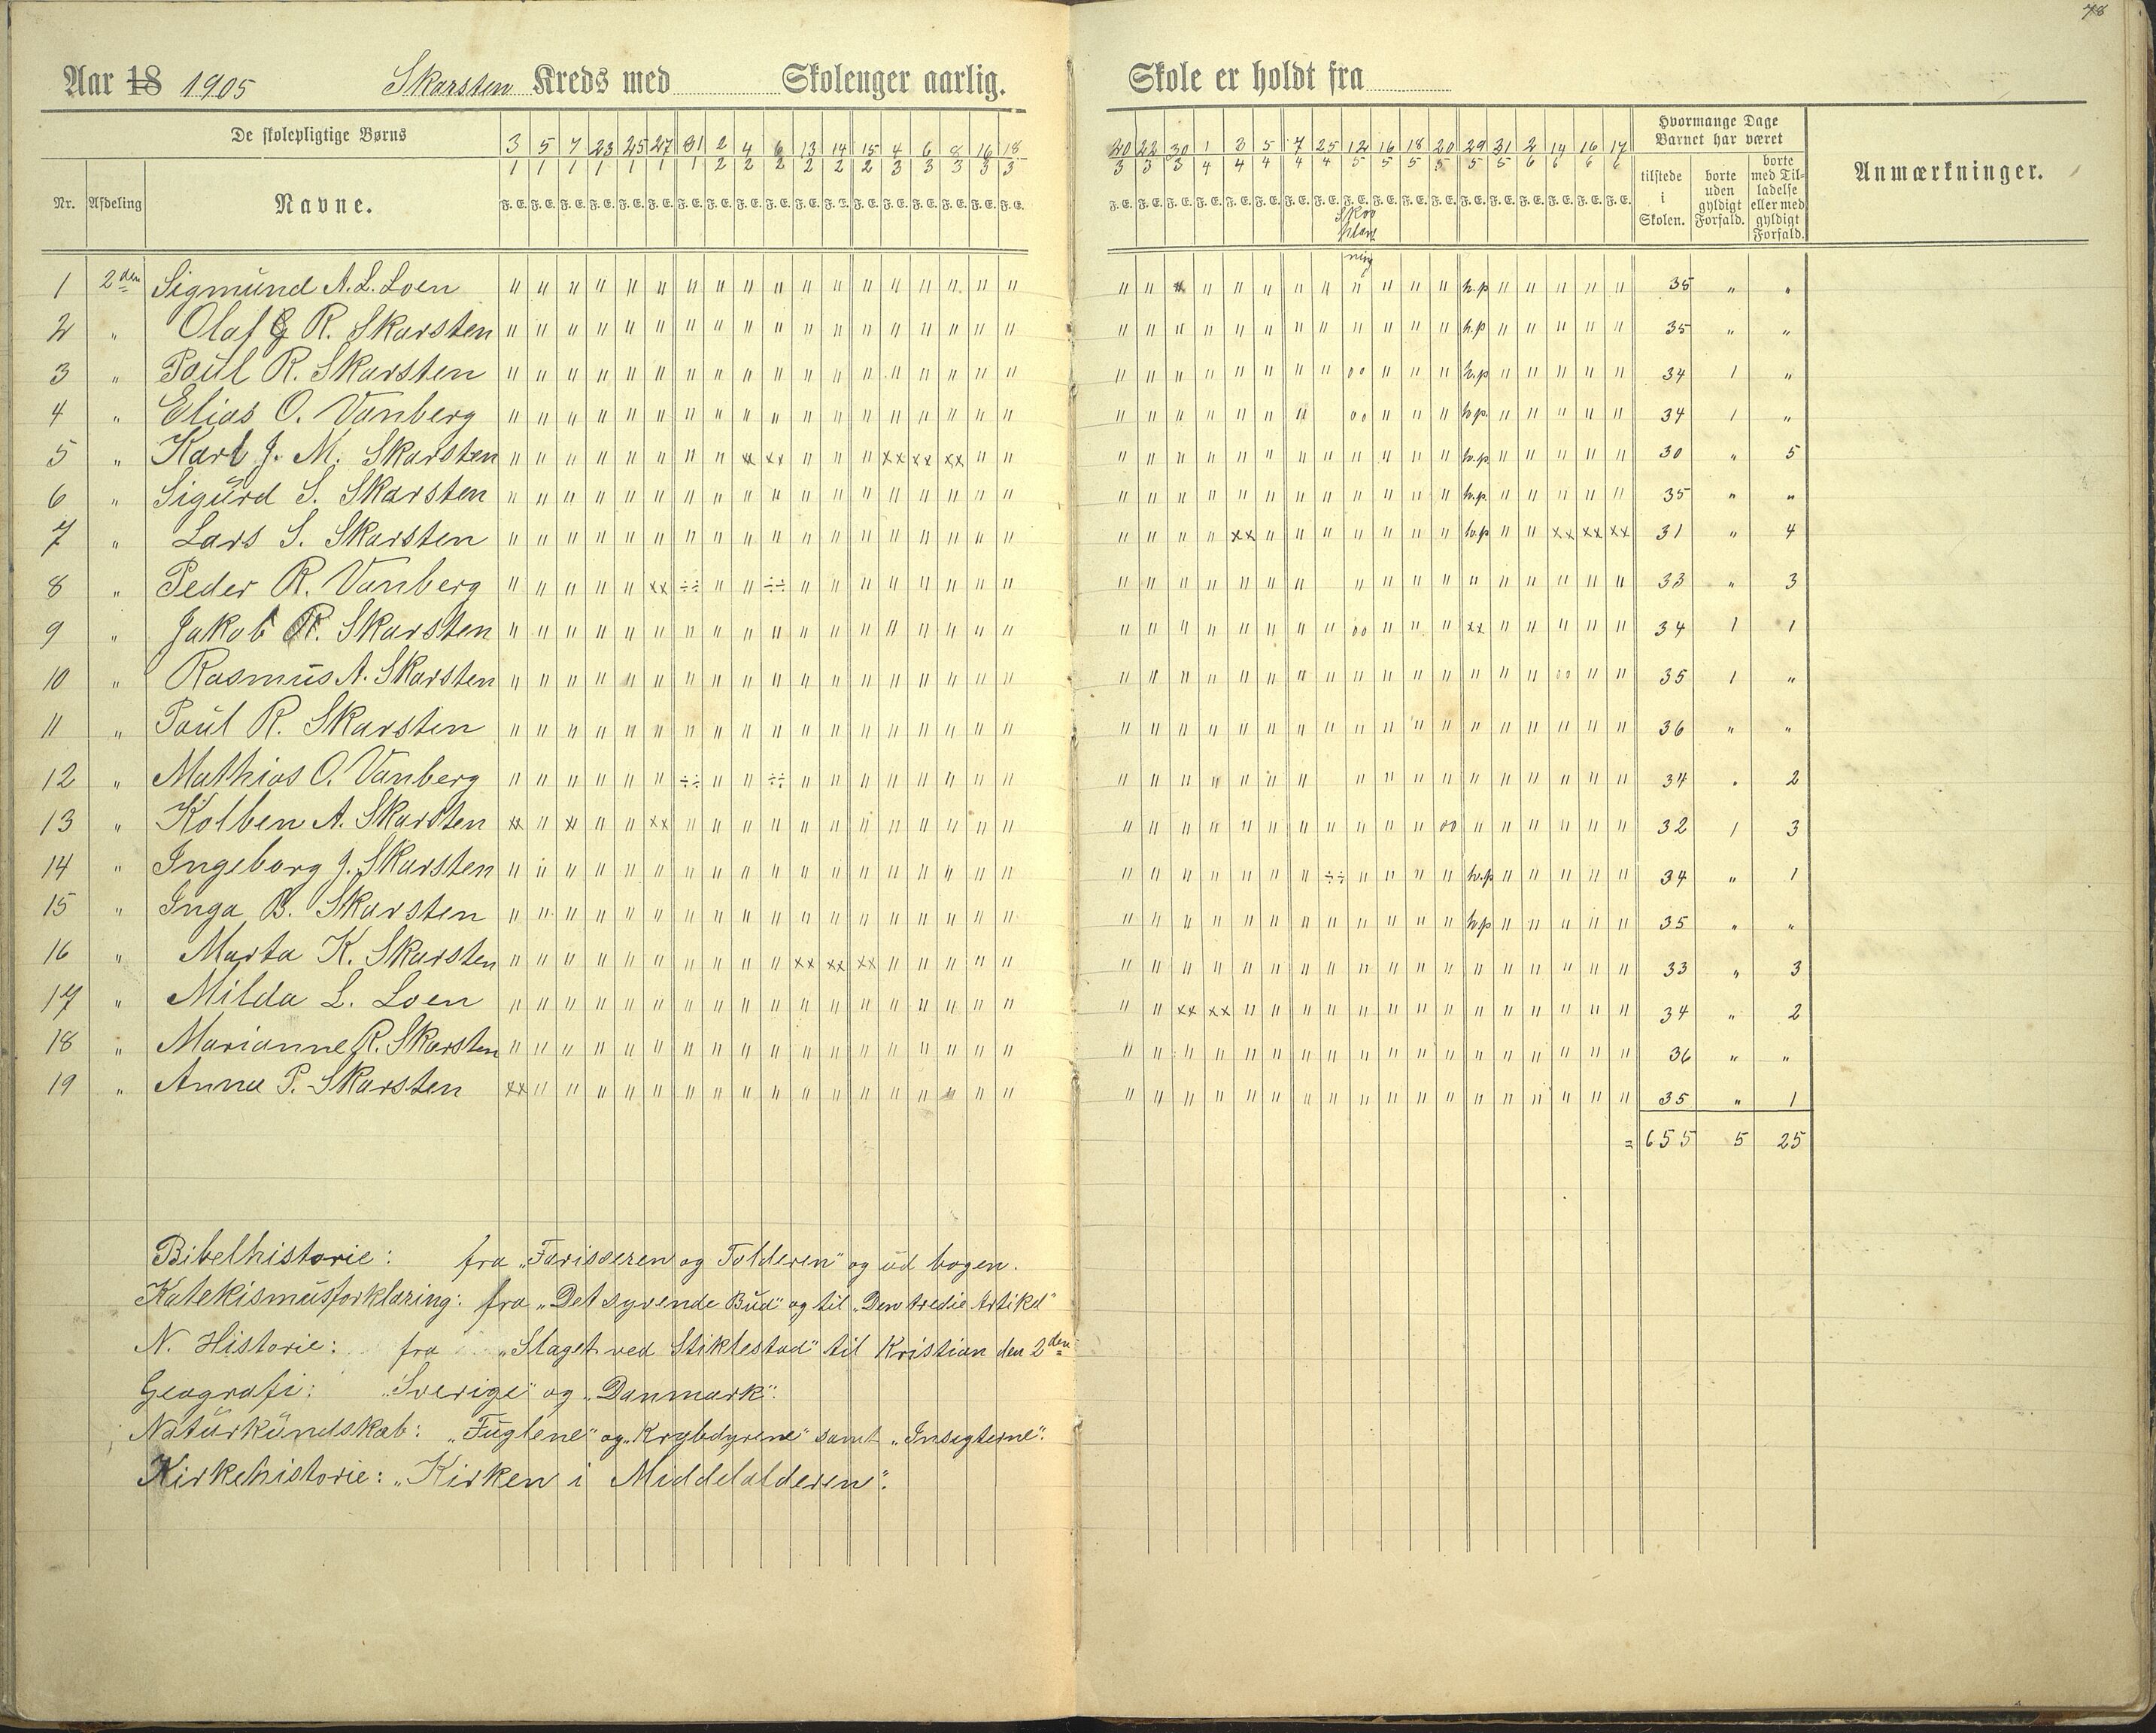 78
Aar 18 1905 Skarsten Kreds med Skolenger aarlig. Skole er holdt fra
De skolepligtige Børns
Nr. Afdeling Navne.
3 5 7 23 25 27 31 2 4 6 13 14 15 4 6 8 16 18
1 1 1 1 1 1 1 2 2 2 2 2 2 3 3 3 3 3
F. E. F. E. F. E. F. E. F. E. F. E. F. E. F. E. F. E. F. E. F. E. F. E. F. E. F. E. F. E. F. E. F. E. F. E.
20 22 30 1 3 5 7 25 12 16 18 20 29 31 2 14 16 17
3 3 3 4 4 4 4 4 5 5 5 5 5 5 6 6 6 6
F. E. F. E. F. E. F. E. F. E. F. E. F. E. F. E. F. E. F. E. F. E. F. E. F. E. F. E. F. E. F. E. F. E. F. E.
Skov
plant
ning
Hvormange Dage
Barnet har været
tilstede
i
Skolen.
borte
uden
gyldigt
Forfald.
borte
med Til-
ladelse
eller med
gyldigt
Forfald.
Anmærkninger.
1 2den Sigmund A. L. Loen " " " " " " " " " " " " " " " " " " " " " " " " " " " " " " h.p " " " " " 35 " "
2 " Olaf G R. Skarsten " " " " " " " " " " " " " " " " " " " " " " " " " " " " " " h.p " " " " " 35 " "
3 " Paul R. Skarsten " " " " " " " " " " " " " " " " " " " " " " " " " " oo " " " h.p " " " " " 34 1 "
4 " Elias O. Vanberg " " " " " " " " " " " " " " " " " " " " " " " " " oo " " " h.p. " " " " " 34 1 "
5 " Karl J. M. Skarsten " " " " " " " " xx xx " " " xx xx xx " " " " " " " " " " " " " " h.p. " " " " " 30 " 5
6 " Sigurd S. Skarsten " " " " " " " " " " " " " " " " " " " " " " " " " " " " " " h.p. " " " " " 35 " "
7 " Lars S. Skarsten " " " " " " " " " " " " " " " " " " " " " " xx " " " " " " " h.p " " xx xx xx 31 " 4
8 " Peder R. Vanberg " " " " " xx ÷÷ " " ÷÷ " " " " " " " " " " " " " " " " " " " " " " " " " 33 " 3
9 " Jakob R. Skarsten " " " " " " " " " " " " " " " " " " " " " " " " " " oo " " " xx " " " " " 34 1 1
10 " Rasmus A. Skarsten " " " " " " " " " " " " " " " " " " " " " " " " " " " " " " " " " oo " " 35 1 "
11 " Paul R. Skarsten " " " " " " " " " " " " " " " " " " " " " " " " " " " " " " " " " " " " 36 " "
12 " Mathias O. Vanberg " " " " " " ÷÷ " " ÷÷ " " " " " " " " " " " " " " " " " " " " " " " " " 34 " 2
13 " Kolben A. Skarsten xx " xx " " xx " " " " " " " " " " " " " " " " " " " " " " " oo " " " " " " 32 1 3
14 " Ingeborg J. Skarsten " " " " " " " " " " " " " " " " " " " " " " " " " ÷÷ " " " " h.p " " " " " 34 " 1
15 " Inga B. Skarsten " " " " " " " " " " " " " " " " " " " " " " " " " " " " " " h.p " " " " " 35 " "
16 " Marta K. Skarsten " " " " " " " " " " xx xx xx " " " " " " " " " " " " " " " " " " " " " " " 33 " 3
17 " Milda L. Loen " " " " " " " " " " " " " " " " " " " " xx xx " " " " " " " " " " " " " " 34 " 2
18 " Marianne R. Skarsten " " " " " " " " " " " " " " " " " " " " " " " " " " " " " " " " " " " " 36 " "
19 " Anna P. Skarsten xx " " " " " " " " " " " " " " " " " " " " " " " " " " " " " " " " " " " 35 " 1
= 655 5 25
Bibelhistorie: fra „Farisæren og Tolderen" og ud bogen.
Katekismusforklaring: fra „Det syvende Bud" og til „Den tredie Artikel"
N. Historie: fra „Slaget ved Stiklestad" til Kristian den 2den
Geografi: „Sverige" og „Danmark".
Naturkundskab: „Fuglene" og „Krybdyrene" samt „Insegterne".
Kirkehistorie: „Kirken i Middelalderen".